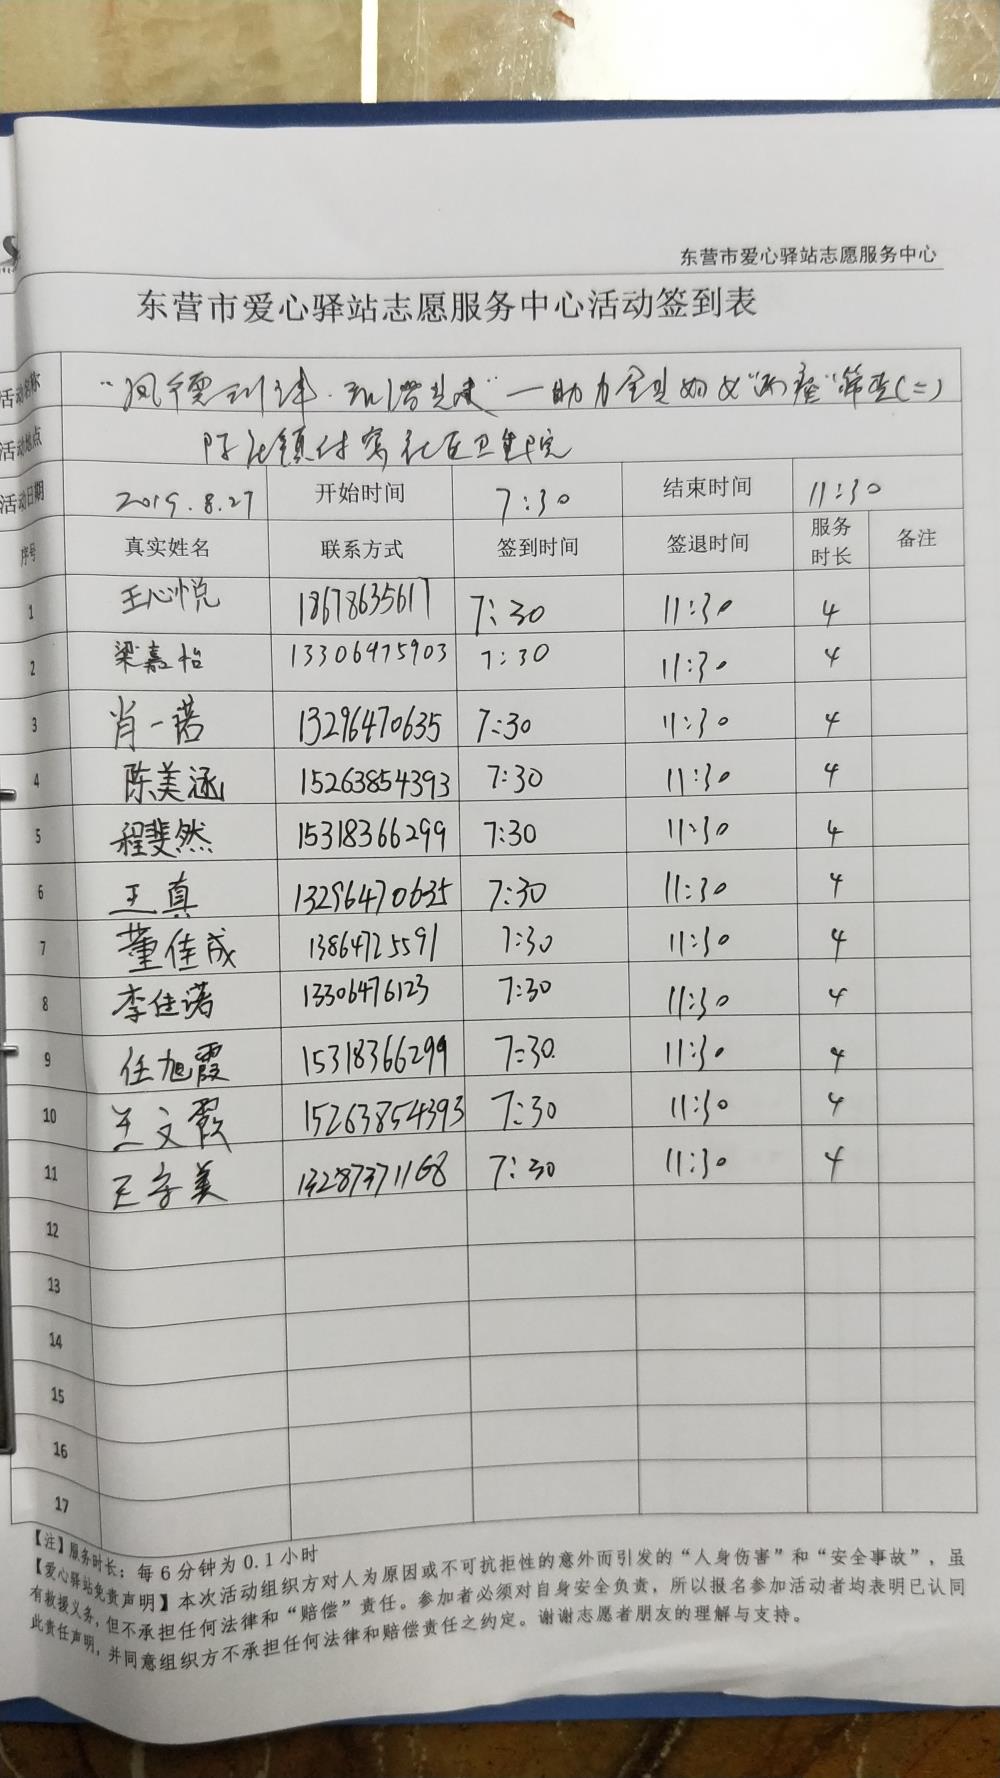 东营市爱心驿站志愿服务中心
东营市爱心驿站志愿服务中心活动签到表
活动名称 一助力全县妇女"两癌"筛查(二)
活动地点 社区卫生院
活动日期 2019.8.27 开始时间 7:30 结束时间 11:30
序号 真实姓名 联系方式 签到时间 签退时间 服务时长 备注
1 王心悦 18678635617 7:30 11:30 4
2 梁嘉怡 13306475903 7:30 11:30 4
3 肖一诺 13296470635 7:30 11:30 4
4 陈美涵 15263854393 7:30 11:30 4
5 程斐然 15318366299 7:30 11:30 4
6 王真 13296470635 7:30 11:30 4
7 董佳成 13864725591 7:30 11:30 4
8 李佳诺 13306476123 7:30 11:30 4
9 任旭霞 15318366299 7:30 11:30 4
10 王文霞 15263854393 7:30 11:30 4
11 王美 13287371168 7:30 11:30 4
12
13
14
15
16
17
【注】服务时长：每6分钟为0.1小时
【爱心驿站免责声明】本次活动组织方对人为原因或不可抗拒性的意外而引发的“人身伤害”和“安全事故”，虽
有救援义务，但不承担任何法律和“赔偿”责任。参加者必须对自身安全负责，所以报名参加活动者均表明已认同
此责任声明，并同意组织方不承担任何法律和赔偿责任之约定。谢谢志愿者朋友的理解与支持。